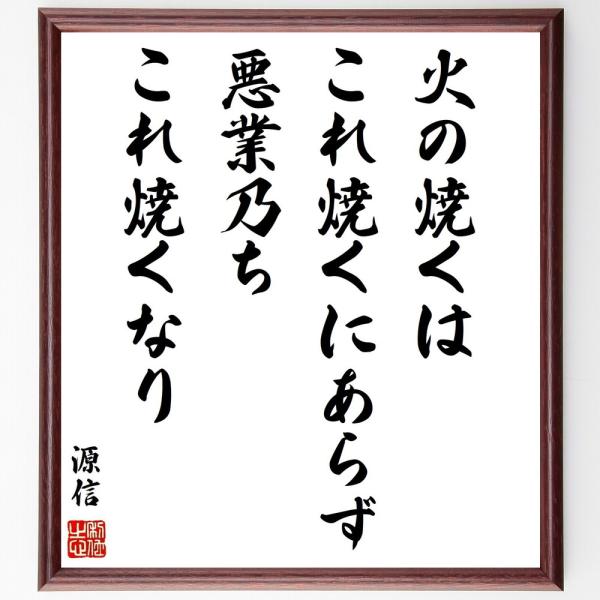 火の焼くは
これ焼くにあらず
悪業乃ち
これ焼くなり
源信